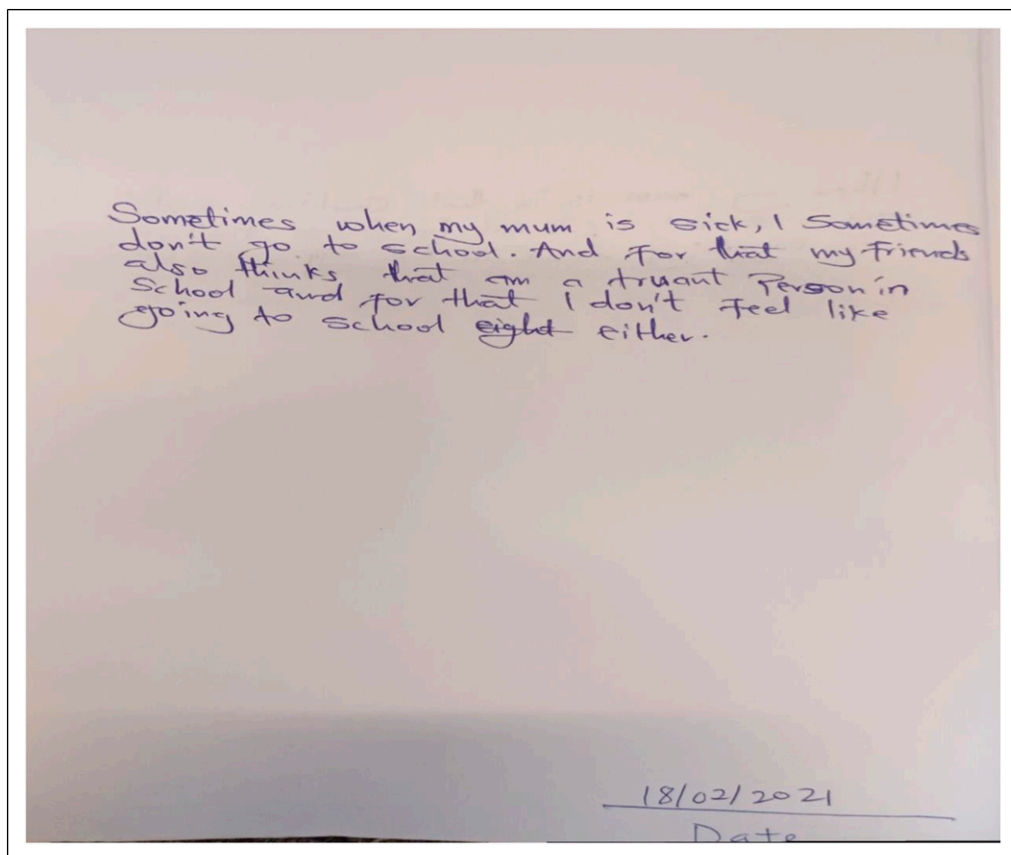 Sometimes when my mum is sick, I Sometimes
don't go to school. And for that my friends
also thinks that am a truant Person in
School and for that I don't feel like
going to school eight either.
18/02/2021
Date